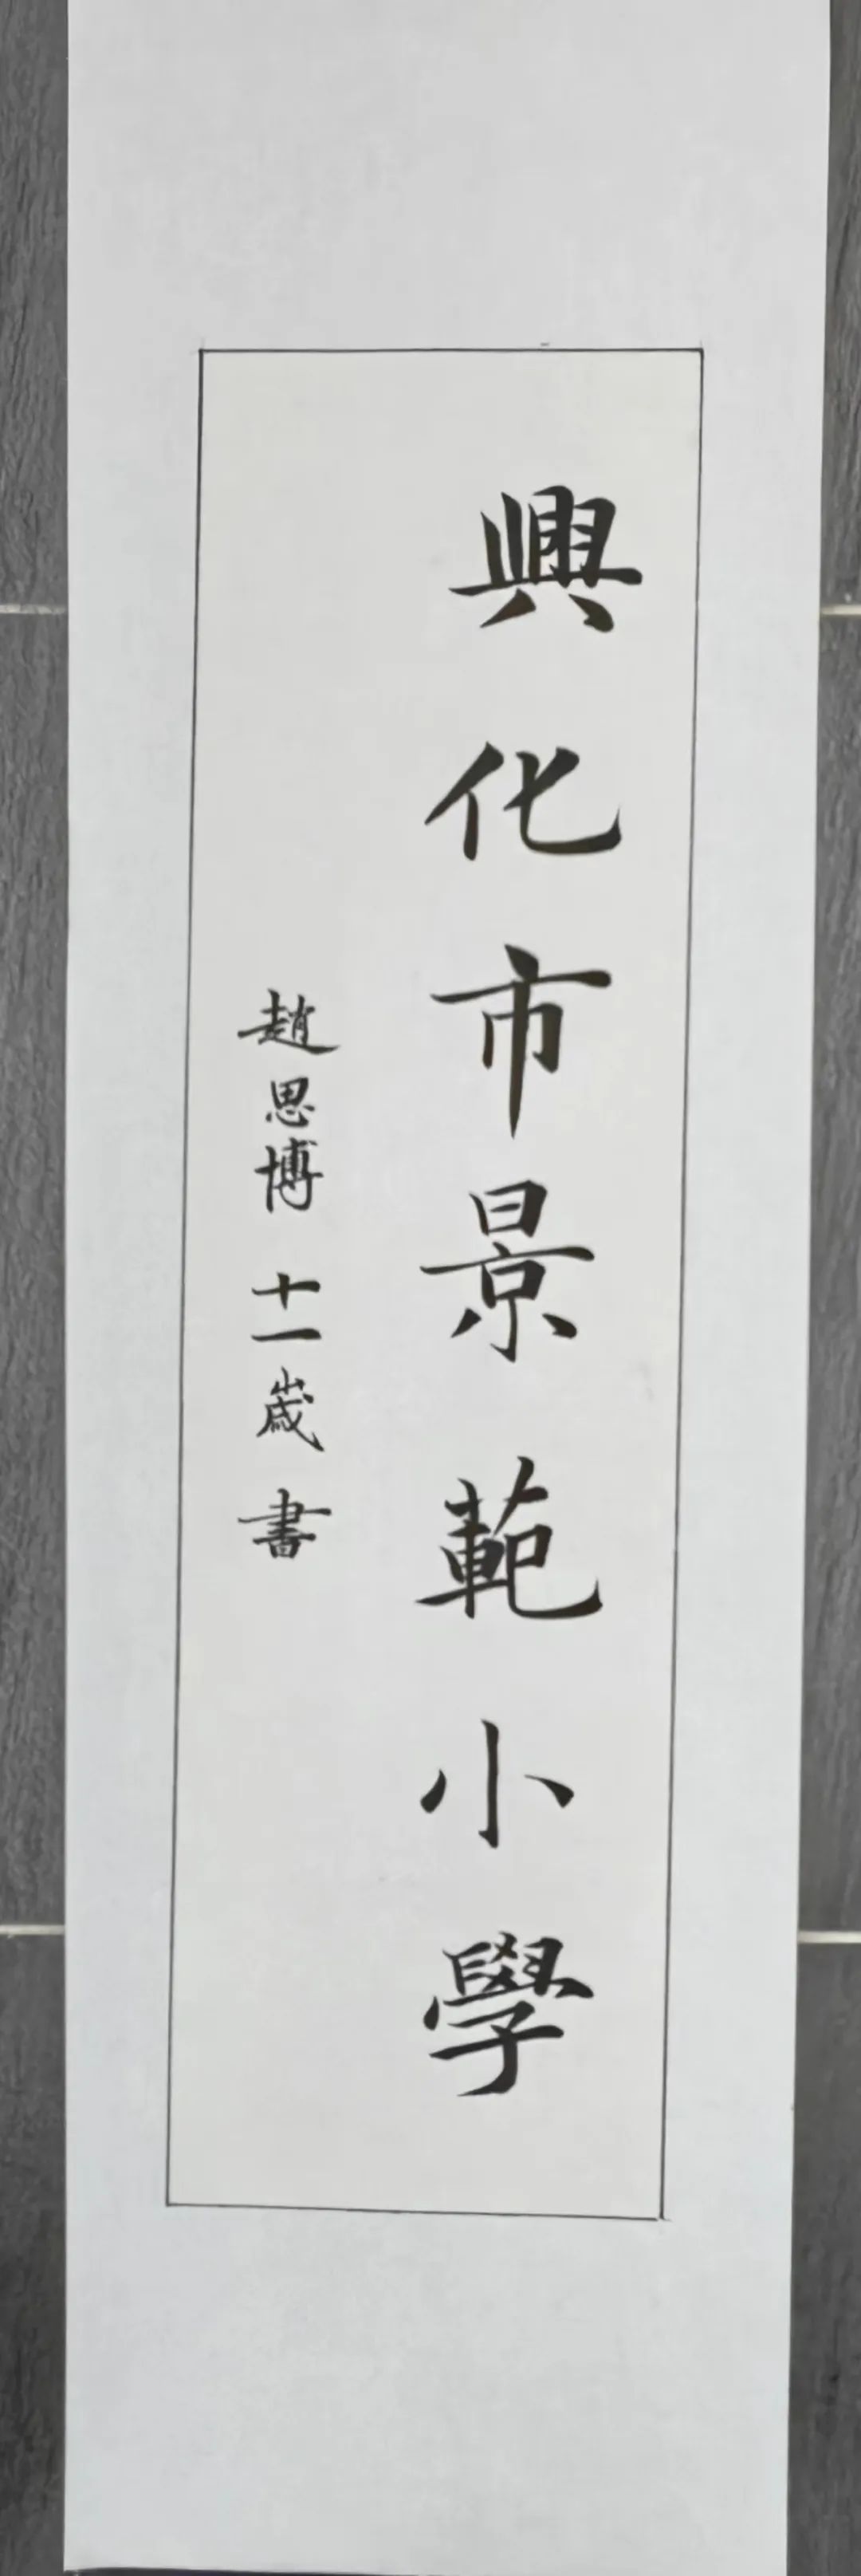 興化市景範小學
趙思博 十一歲 書